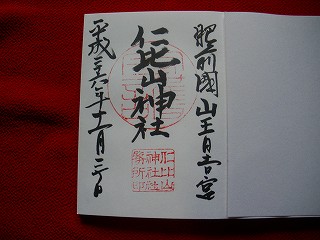 肥前國山王日吉宮
仁比山神社
平成二十六年十一月二十日
仁比山
神社社
務所印